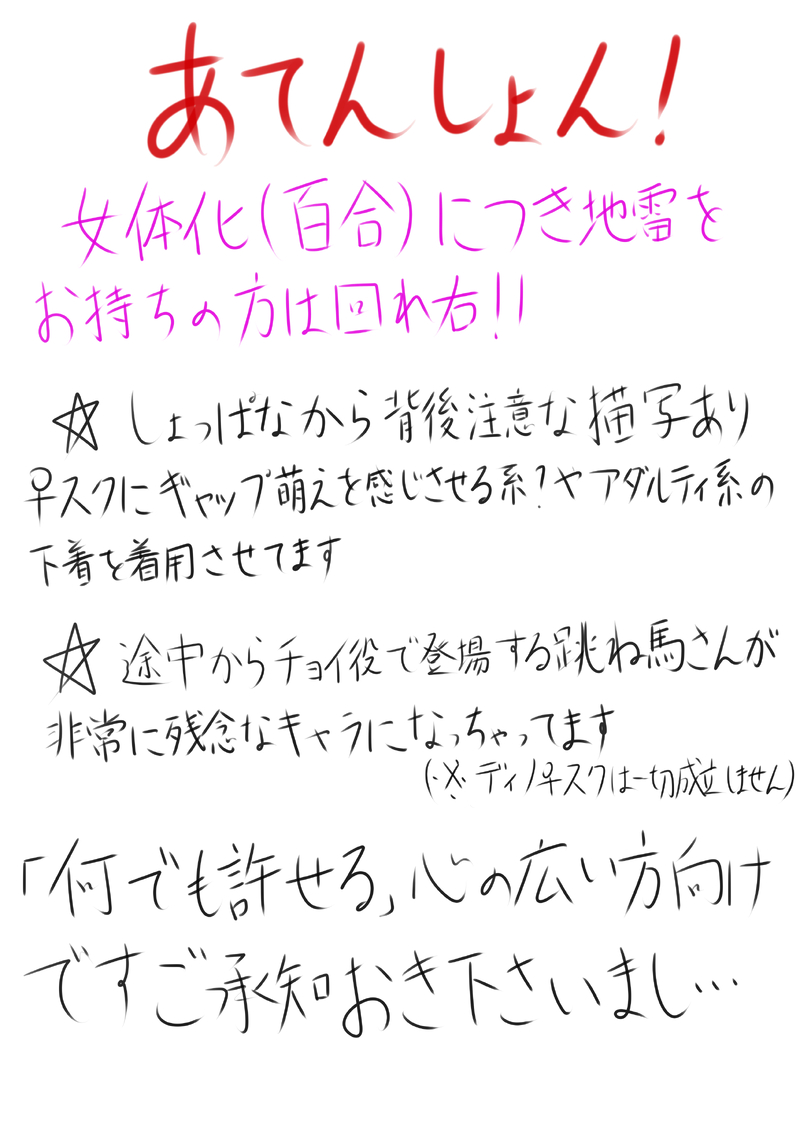 あてんしょん!
女体化(百合)につき地雷を
お持ちの方は回れ右!!
☆ しょっぱなから背後注意な描写あり
♀スクにギャップ萌えを感じさせる系?やアダルティ系の
下着を着用させてます
☆ 途中からチョイ役で登場する跳ね馬さんが
非常に残念なキャラになっちゃってます
(※ディノ♀スクは一切成立しません)
「何でも許せる」心の広い方向け
ですご承知おき下さいまし…